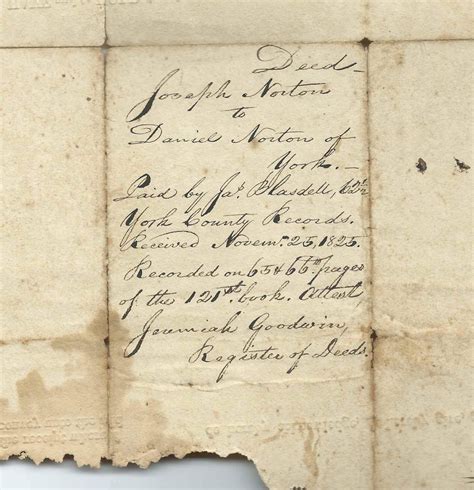 Deed
Joseph Norton
to
Daniel Norton of
York.
Paid by Jas. Blasdell,
York County Records.
Received Novem. 25, 1825.
Recorded on 65 & 66th pages
of the 121st. book. Attest,
Jeremiah Goodwin,
Register of Deeds.